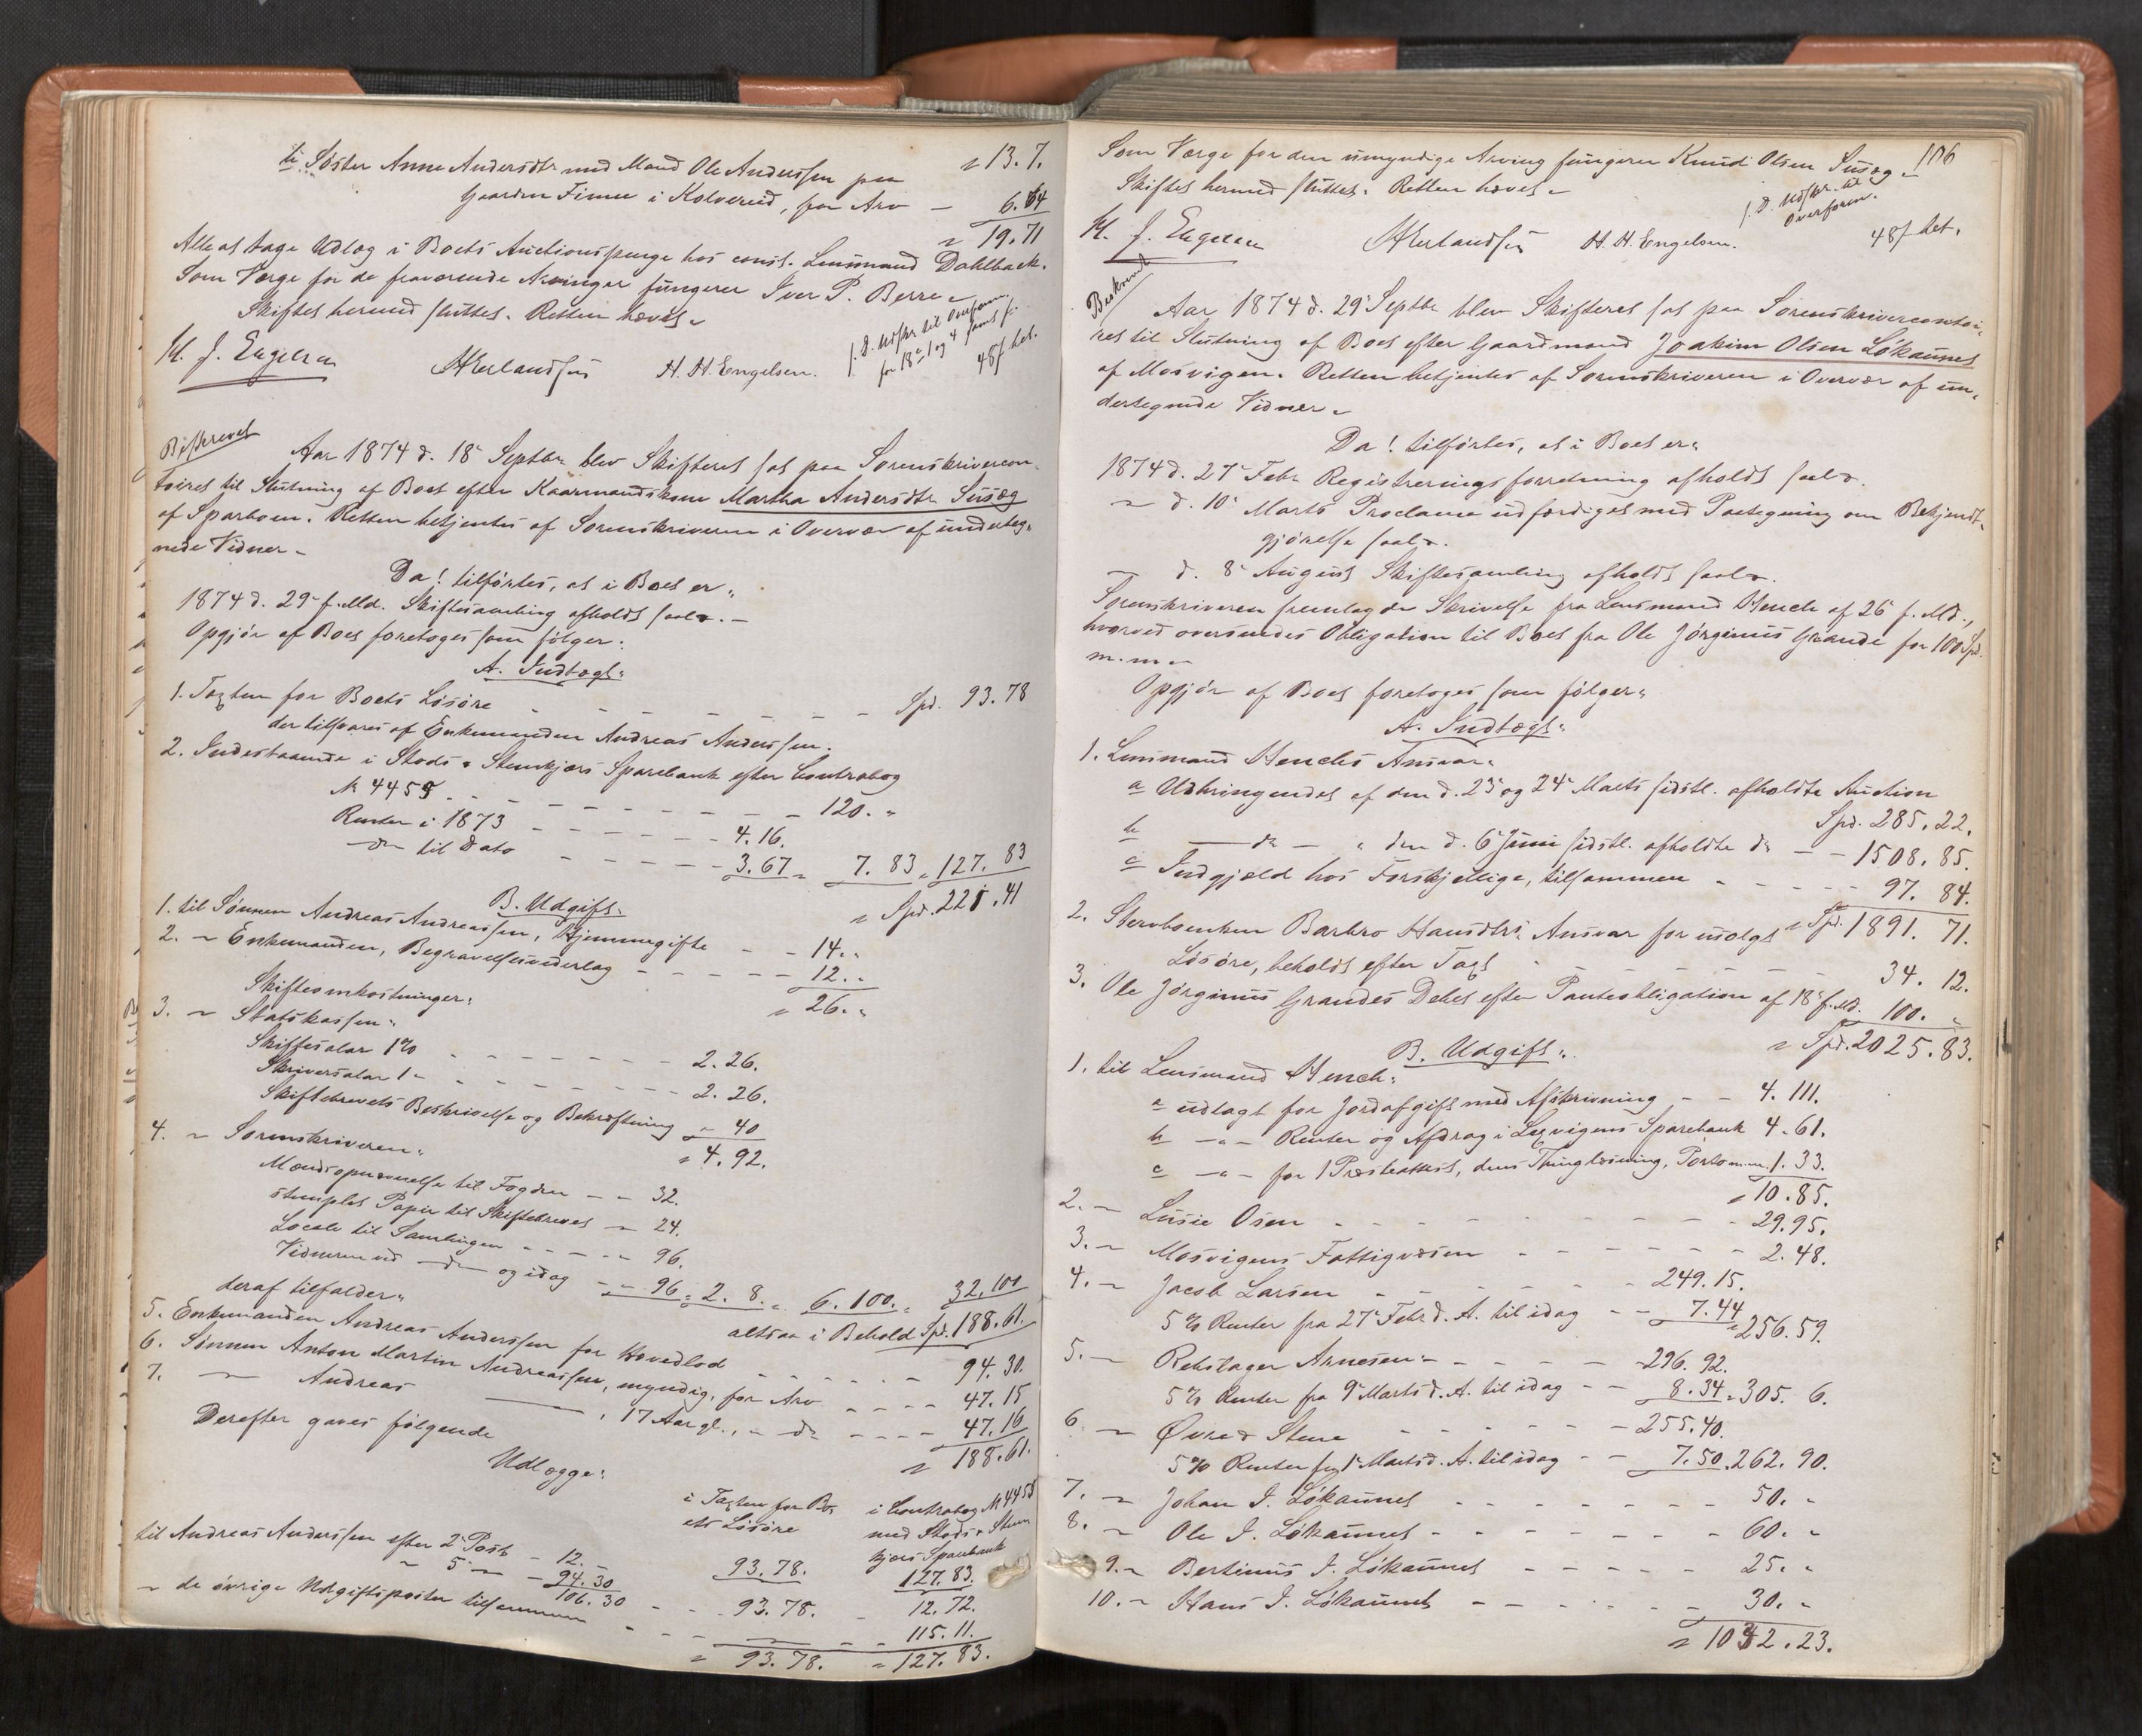 til Søster Anne Andersdtr med Mand Ole Anderssen paa " 13. 7.
Gaarden Finne i Kolvereid, for Arv — 6. 64
" 19. 71
Alle at tage Udlæg i Boets Auctionspenge hos const. Lensmand Dahlback.
Som Værge for de fraværende Arvinger fungerer Iver P. Berre.
Skiftet hermed sluttet. Retten hævet.
M. J. Engelsen H. H. Engelsen.
f. D. Udskr. til Overform.
48 f bet.
Beskrevet
Aar 1874 d. 18 Septbr blev Skifteret sat paa Sorenskrivercon-
toiret til Slutning af Boet efter Kaarmandskone Martha Andersdtr Susæg
af Sparboen. Retten betjentes af Sorenskriveren i Overvær af underteg-
nede Vidner.
Da! tilførtes, at i Boet er:
1874 d. 29 f. Md. Skiftesamling afholdt saal. —
Opgjør af Boet foretoges som følger:
A. Indtægt:
1. Taxten for Boets Løsøre — — — — — — Spd. 93. 78
der tilsvares af Enkemanden Andreas Anderssen.
2. Indestaaende i Stods & Stenkjærs Sparebank efter Contrabog
N 4455 — — — — — — 120. "
Renter i 1873 — — — — 4. 16.
— do til Dato — — — — 3. 67 " 7. 83 " 127. 83
" Spd. 221. 41
B. Udgift:
1. til Sønnen Andreas Andreassen, Hjemmegifte — — 14. "
2. " Enkemanden, Begravelsesvederlag — — — — 12. "
" 26. "
Skifteomkostninger:
3. " Statskassen:
Skiftesalar 1% — — — — — — 2. 26.
Skriversalar 1 " — — — — — — 2. 26.
Skiftebrevets Beskrivelse og Bekræftning " 40
" 4. 92.
4. " Sorenskriveren:
Mændsopnævnelse til Fogden — — 32.
stemplet Papir til Skiftebrevet — 24.
Locale til Samlingen — — — 96.
Vidnerne ved — do — og idag — — 96 " 2. 8. " 6. 100. " 32. 100
altsaa i Behold Spd. 188. 61.
deraf tilfalder:
5. Enkemanden Andreas Anderssen for Hovedlod — — — — 94. 30.
6. Sønnen Anton Martin Andreassen, myndig, for Arv — — — — 47. 15
7. " Andreas ——— , 17 Aar gl., " do — — — — 47. 16
" 188. 61.
Derefter gaves følgende
Udlægge:
i Taxten for Bo- i Contrabog N 4455
ets Løsøre med Stods & Sten-
kjærs Sparebank
til Andreas Anderssen efter 2 Post — 12. 93. 78. 127. 83.
" 5 " — 94. 30
106. 30 — — 93. 78. — 12. 72.
" de øvrige Udgiftsposter tilsammen — — — — — 115. 11.
" 93. 78. " 127. 83.
106
Som Værge for den umyndige Arving fungerer Knud Olsen Susæg.
Skiftet hermed sluttet. Retten hævet.
f. D. Udskr. til
Overform.
48 f bet.
M. J. Engelsen H. H. Engelsen.
Beskrevet
Aar 1874 d. 29 Septbr blev Skifteret sat paa Sorenskrivercontoi-
ret til Slutning af Boet efter Gaardmand Joakim Olsen Løkaunet
af Mosvigen. Retten betjentes af Sorenskriveren i Overvær af un-
dertegnede Vidner.
Da! tilførtes, at i Boet er:
1874 d. 27 Febr Registreringsforretning afholdt saal.
" d. 10 Marts Proclama udfærdiget med Paategning om Bekjendt-
gjørelse saal.
" d. 8 August Skiftesamling afholdt saal.
Sorenskriveren fremlagde Skrivelse fra Lensmand Hench af 26 f. Md.,
hvorved oversendes Obligation til Boet fra Ole Jørginus Grande for 100 Spd.
m. m.
Opgjør af Boet foretoges som følger:
A. Indtægt:
1. Lensmand Henchs Ansvar:
a Udbringendet af den d. 23 og 24 Marts sidstl. afholdte Auction
Spd. 285. 22.
b — do — " den d. 6 Juni sidstl. afholdte do — — 1508. 85.
c Indgjæld hos Forskjellige, tilsammen — — — — 97. 84.
" Spd. 1891. 71.
2. Stervboenken Barbro Hansdtrs Ansvar for usolgt
Løsøre, beholdt efter Taxt — — — — — 34. 12.
3. Ole Jørginus Grandes Debet efter Panteobligation af 18 f. Md. 100. "
" Spd. 2025. 83.
B. Udgift:
1. til Lensmand Hench:
a udlagt for Jordafgift med Afskrivning — — 4. 111.
b — " — Renter og Afdrag i Lexvigens Sparebank 4. 61.
c — " — for 1 Præsteattest, dens Thinglæsning, Porto m. m. 1. 33.
" 10. 85.
2. " Lusie Osen — — — — — — — 29. 95.
3. " Mosvigens Fattigvæsen — — — — — 2. 48.
4. " Jacob Larsen — — — — — 249. 15.
5% Renter fra 27 Febr d. A. til idag — — 7. 44 " 256. 59.
5. " Rebslager Arnesen — — — — — 296. 92.
5% Renter fra 9 Marts d. A. til idag — — 8. 34 " 305. 6.
6. " Øvre & Stene — — — — — 255. 40.
5% Renter fra 1 Marts d. A. til idag — — 7. 50. 262. 90.
7. " Johan J. Løkaunet — — — — — — 50. "
8. " Ole J. Løkaunet — — — — — — 60. "
9. " Bertinus J. Løkaunet — — — — — 25. "
10. " Hans J. Løkaunet — — — — — — 30. "
" 1032. 23.